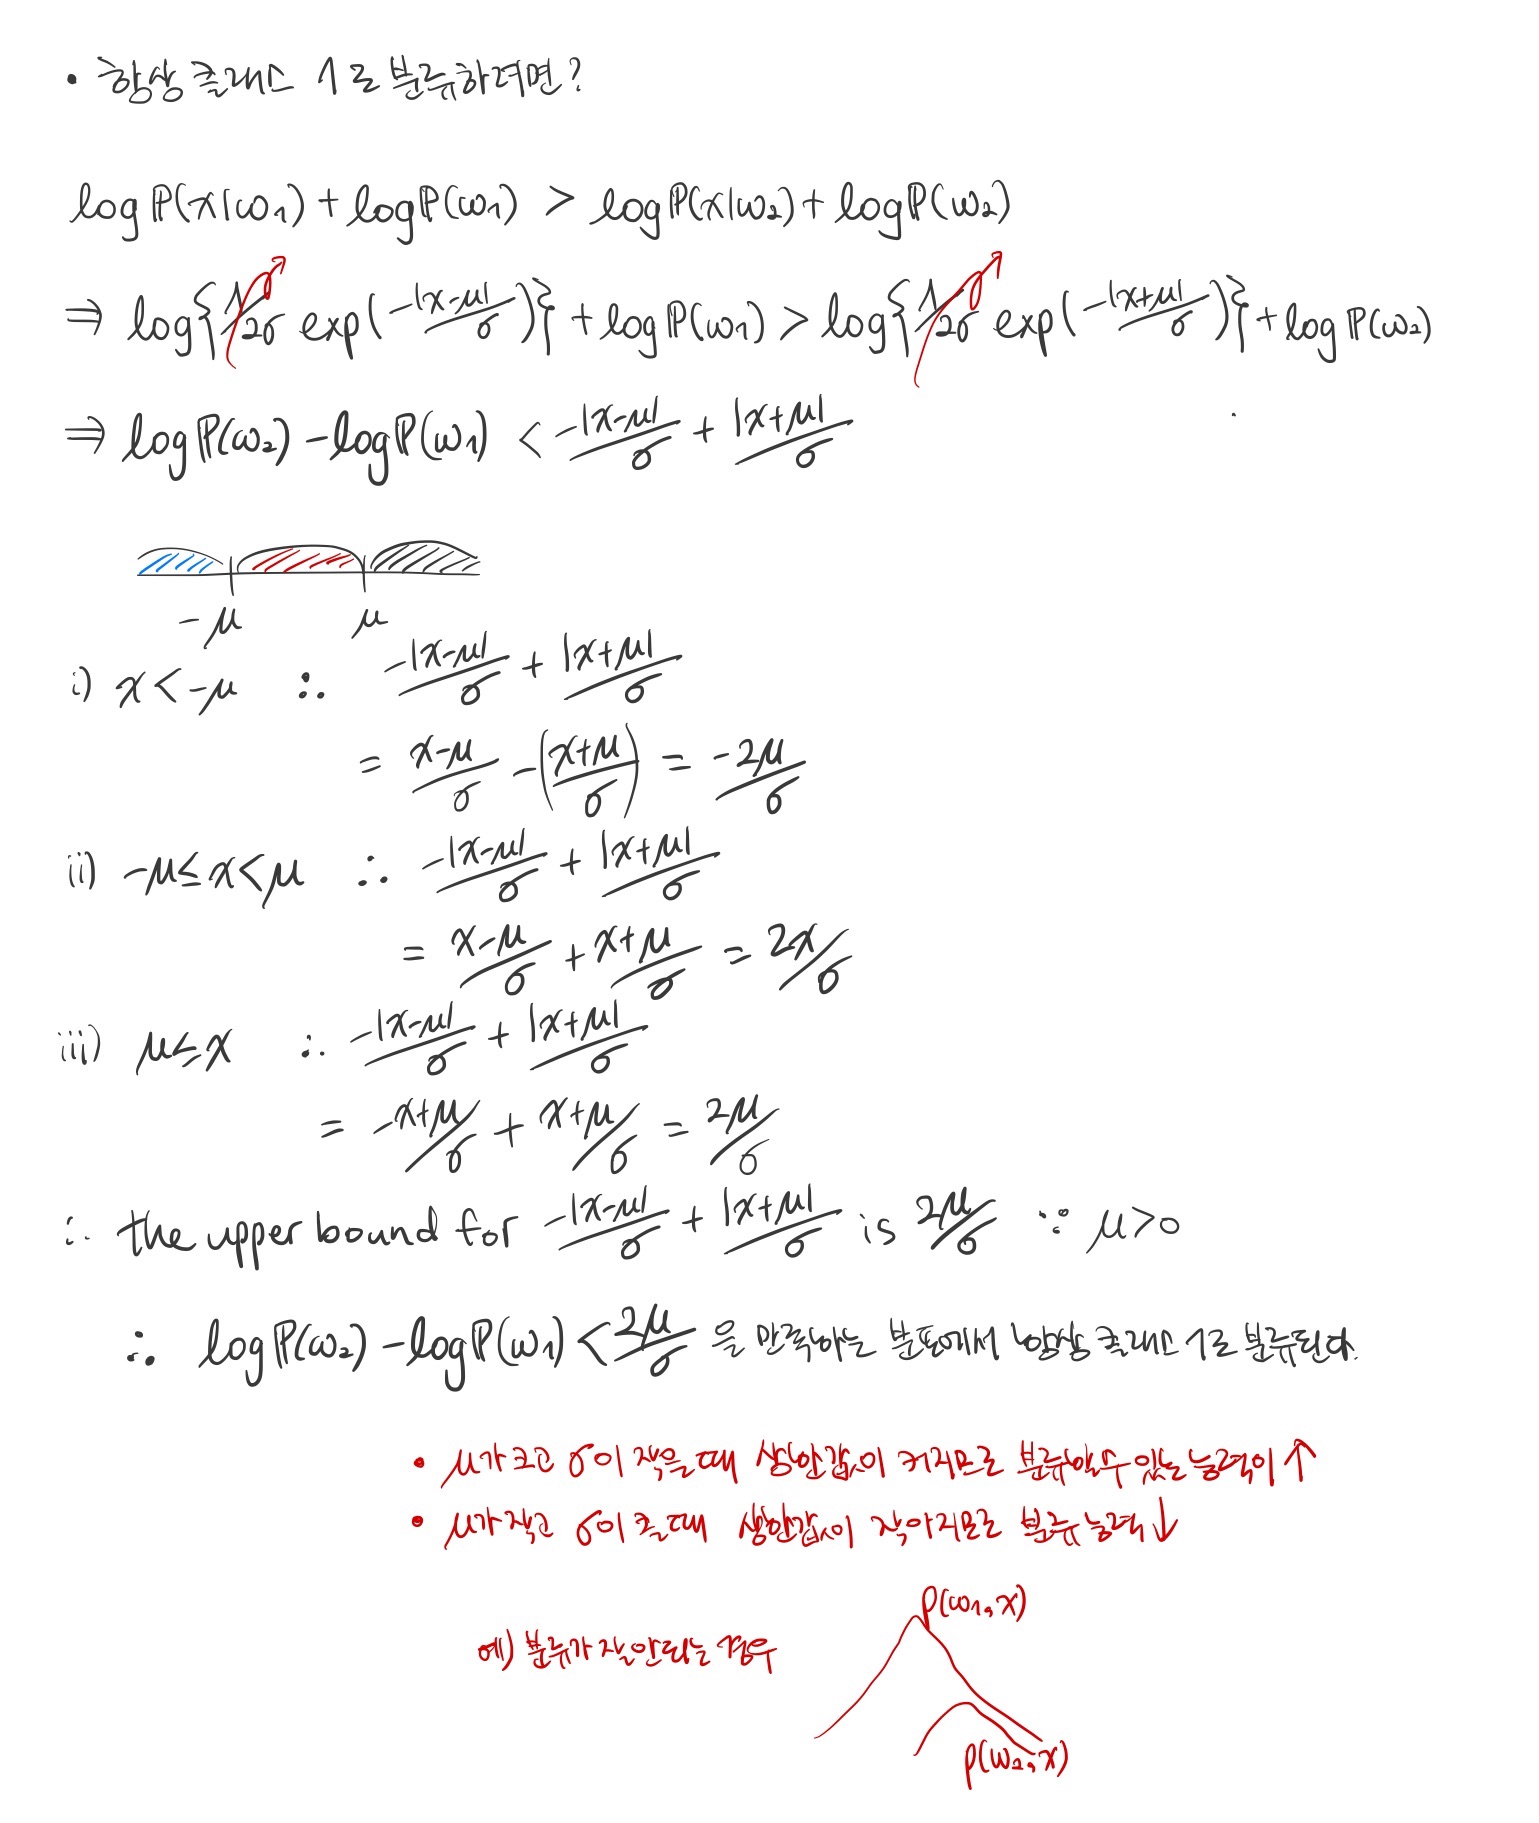 • 항상 클래스 1로 분류하려면?
log ℙ(x|ω₁) + log ℙ(ω₁) > log ℙ(x|ω₂) + log ℙ(ω₂)
⇒ log{1/2σ exp(-|x-μ|/σ)} + log ℙ(ω₁) > log{1/2σ exp(-|x+μ|/σ)} + log ℙ(ω₂)
⇒ log ℙ(ω₂) - log ℙ(ω₁) < -|x-μ|/σ + |x+μ|/σ
-μ μ
i) x < -μ ∴ -|x-μ|/σ + |x+μ|/σ
= x-μ/σ - (x+μ/σ) = -2μ/σ
ii) -μ ≤ x < μ ∴ -|x-μ|/σ + |x+μ|/σ
= x-μ/σ + x+μ/σ = 2x/σ
iii) μ ≤ x ∴ -|x-μ|/σ + |x+μ|/σ
= -x+μ/σ + x+μ/σ = 2μ/σ
∴ the upper bound for -|x-μ|/σ + |x+μ|/σ is 2μ/σ ∵ μ>0
∴ log ℙ(ω₂) - log ℙ(ω₁) < 2μ/σ 을 만족하는 분포에서 항상 클래스 1로 분류된다.
• μ가 크고 σ이 작을때 상한값이 커지므로 분류할수있는 능력이 ↑
• μ가 작고 σ이 클때 상한값이 작아지므로 분류능력 ↓
p(ω₁, x)
예) 분류가 잘안되는 경우
p(ω₂, x)